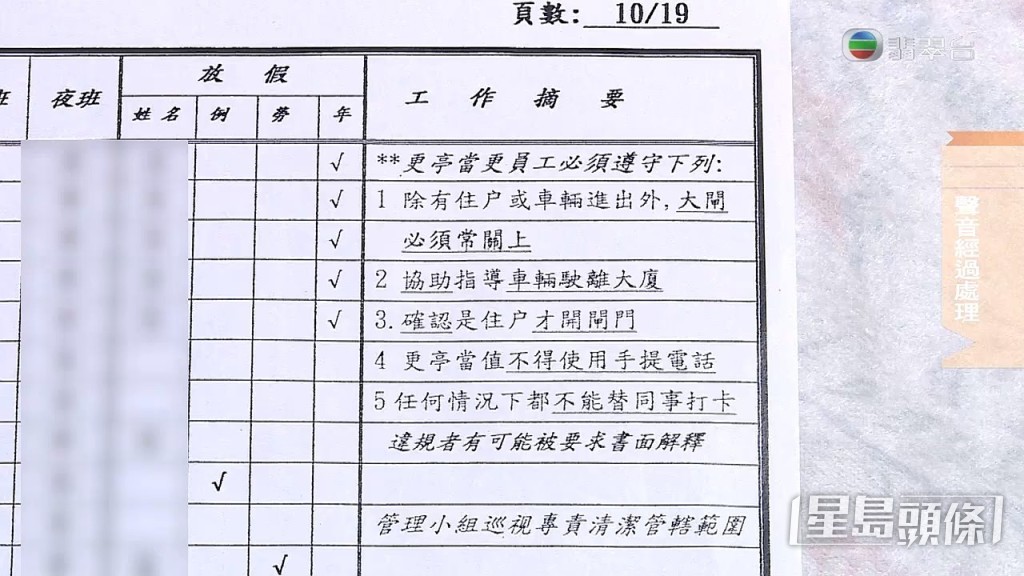 頁數: 10/19
翡翠台
班 夜班 放 假 工 作 摘 要
姓 名 例 勞 年
√ **更亭當更員工必須遵守下列:
√ 1 除有住户或車輛進出外, 大閘
√ 必須常關上
√ 2 協助指導車輛駛離大廈
√ 3. 確認是住户才開閘門
4 更亭當值不得使用手提電話
5 任何情況下都不能替同事打卡
違規者有可能被要求書面解釋
√
管理小組巡視專責清潔管轄範圍
√
聲音經過處理
星島頭條